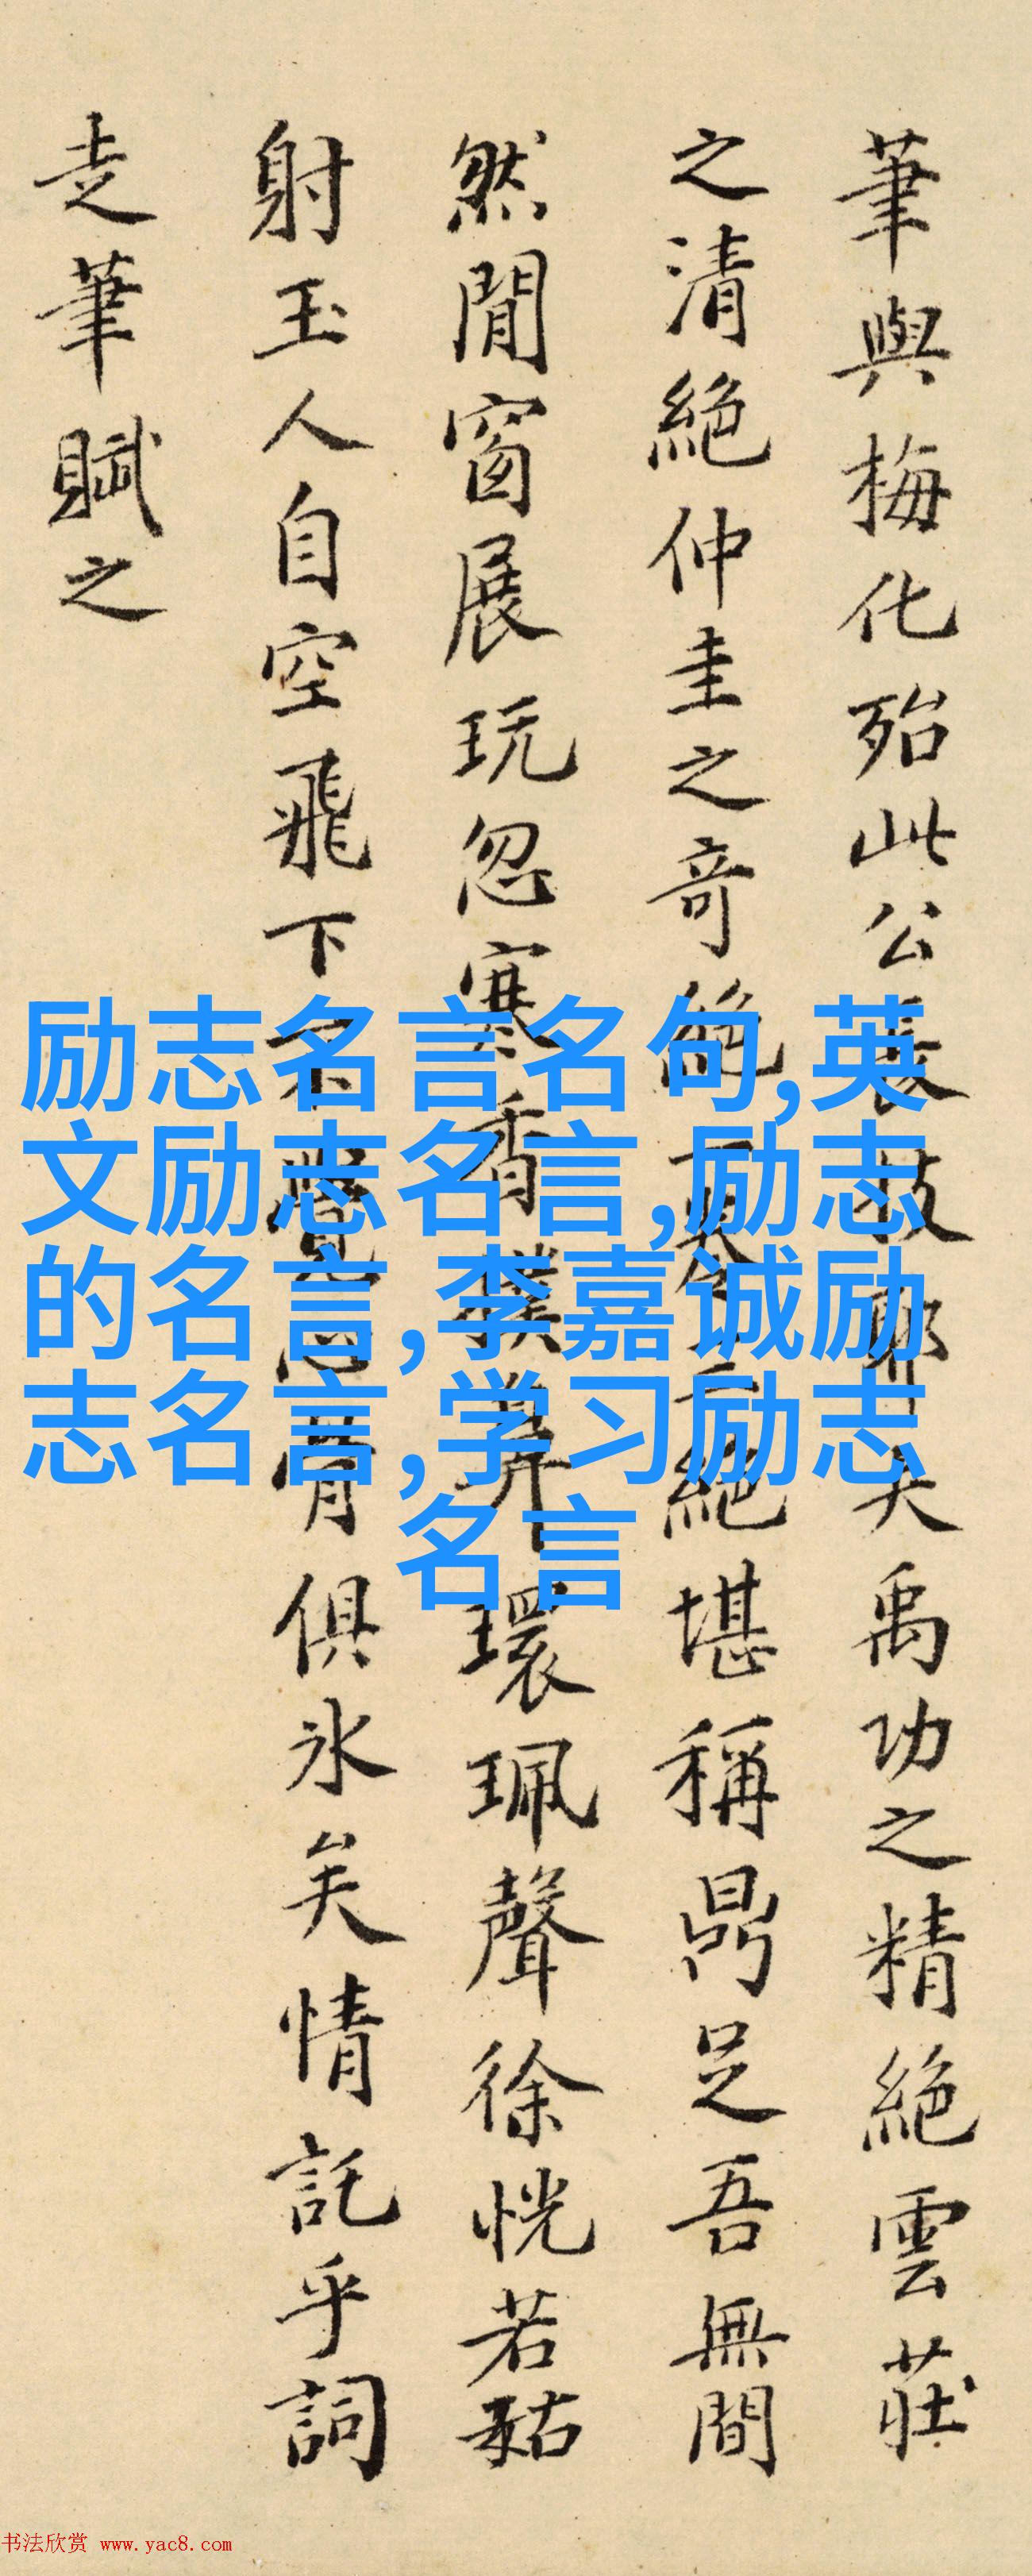 筆與梅化殆此公長技耶夫禹功之精絕雲莊
之清絕仲圭之奇絕絕堪稱鼎足吾無間
然閒窗展玩忽寒香撲鼻環珮聲徐恍若
射玉人自空飛下不覺心骨俱氷矣情託乎詞
走筆賦之
励志名言名句,英
文励志名言,励志
的名言,李嘉诚励
志名言,学习励志
名言
书法欣赏 www.yac8.com